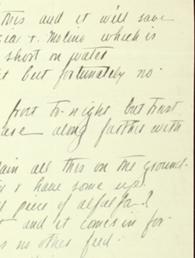 this and it will save
& Moline which is
short on water
but fortunately no
frost to-night but trust
along farther with
all this on the ground-
& have some up!
piece of alfalfa-!
and it comes in for-
no other feed-